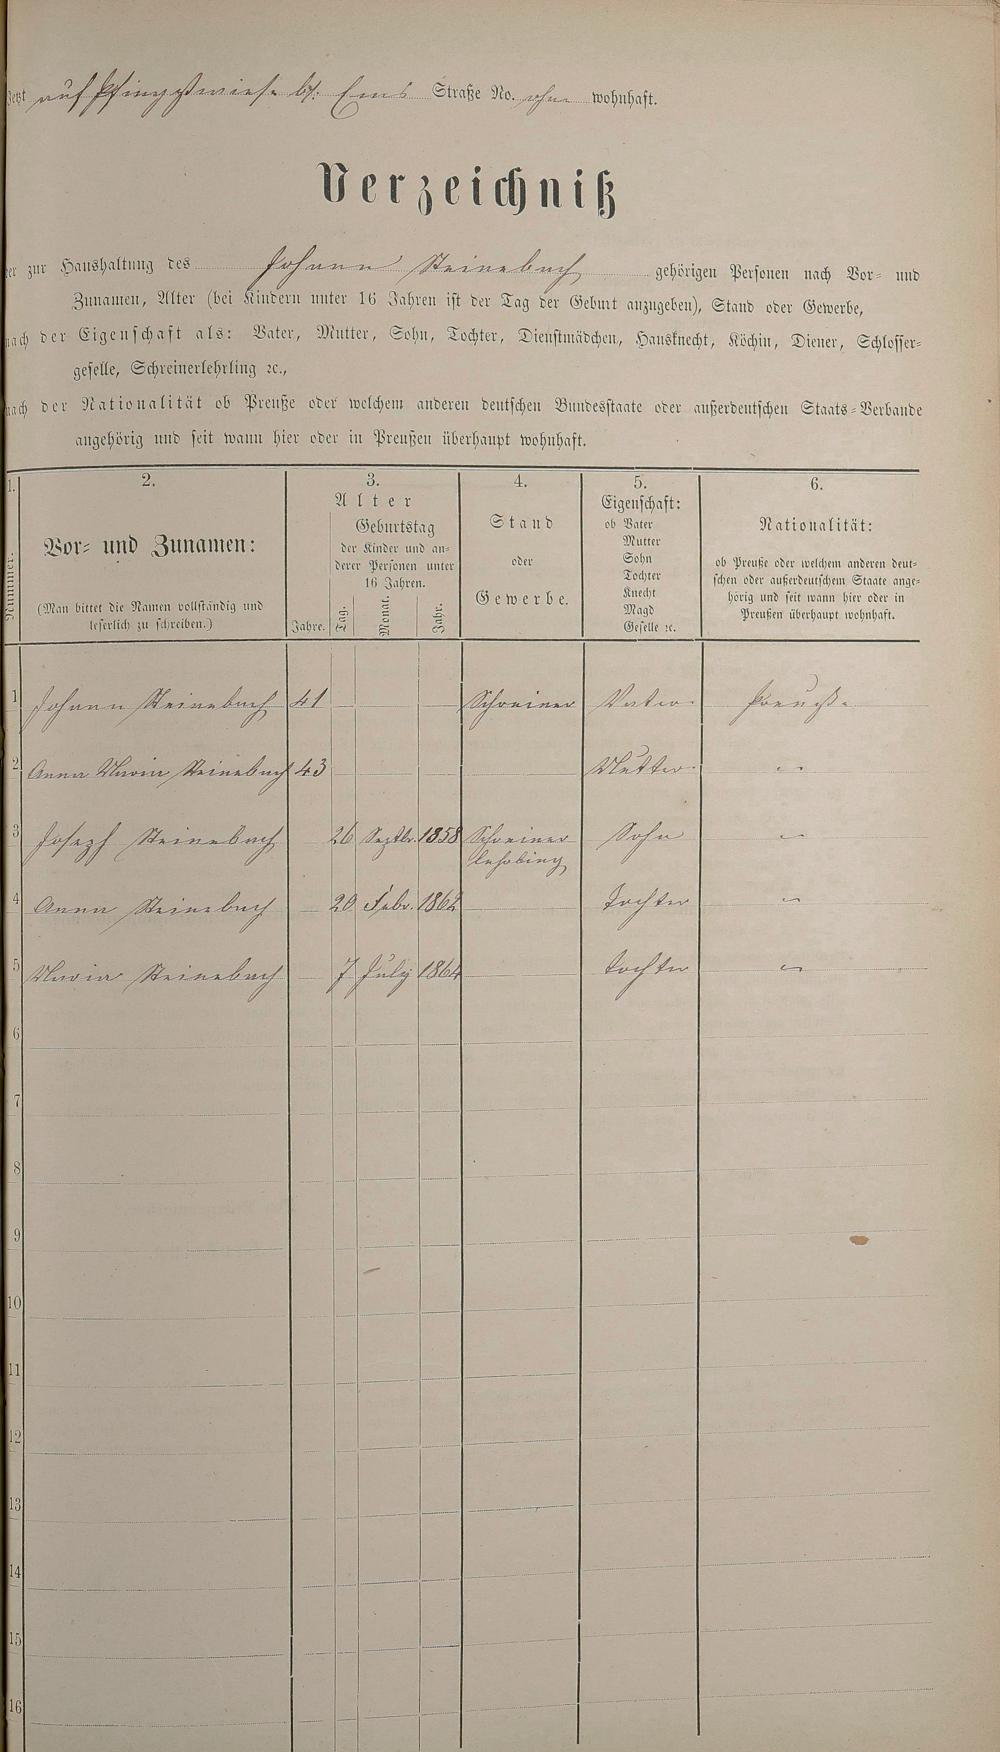 Jetzt auf Pfingstwiese bei Ems Straße No. ohne wohnhaft.
Verzeichniß
der zur Haushaltung des Johann Steinebach gehörigen Personen nach Vor- und
Zunamen, Alter (bei Kindern unter 16 Jahren ist der Tag der Geburt anzugeben), Stand oder Gewerbe,
nach der Eigenschaft als: Vater, Mutter, Sohn, Tochter, Dienstmädchen, Hausknecht, Köchin, Diener, Schlosser-
geselle, Schreinerlehrling ꝛc.,
nach der Nationalität ob Preuße oder welchem anderen deutschen Bundesstaate oder außerdeutschen Staats-Verbande
angehörig und seit wann hier oder in Preußen überhaupt wohnhaft.
1. 2. 3. 4. 5. 6.
Nummer.
Vor- und Zunamen:
(Man bittet die Namen vollständig und
leserlich zu schreiben.)
Alter
Jahre.
Geburtstag
der Kinder und an-
derer Personen unter
16 Jahren.
Tag. Monat. Jahr.
Stand
oder
Gewerbe.
Eigenschaft:
ob Vater
Mutter
Sohn
Tochter
Knecht
Magd
Geselle ꝛc.
Nationalität:
ob Preuße oder welchem anderen deut-
schen oder außerdeutschem Staate ange-
hörig und seit wann hier oder in
Preußen überhaupt wohnhaft.
1 Johann Steinebach 41 Schreiner Vater Preuße
2 Anna Maria Steinebach 43 Mutter "
3 Joseph Steinebach 26 Septbr. 1858 Schreiner Sohn "
lehrling
4 Anna Steinebach 20 Febr. 1862 Tochter "
5 Maria Steinebach 7 July 1864 Tochter "
6
7
8
9
10
11
12
13
14
15
16